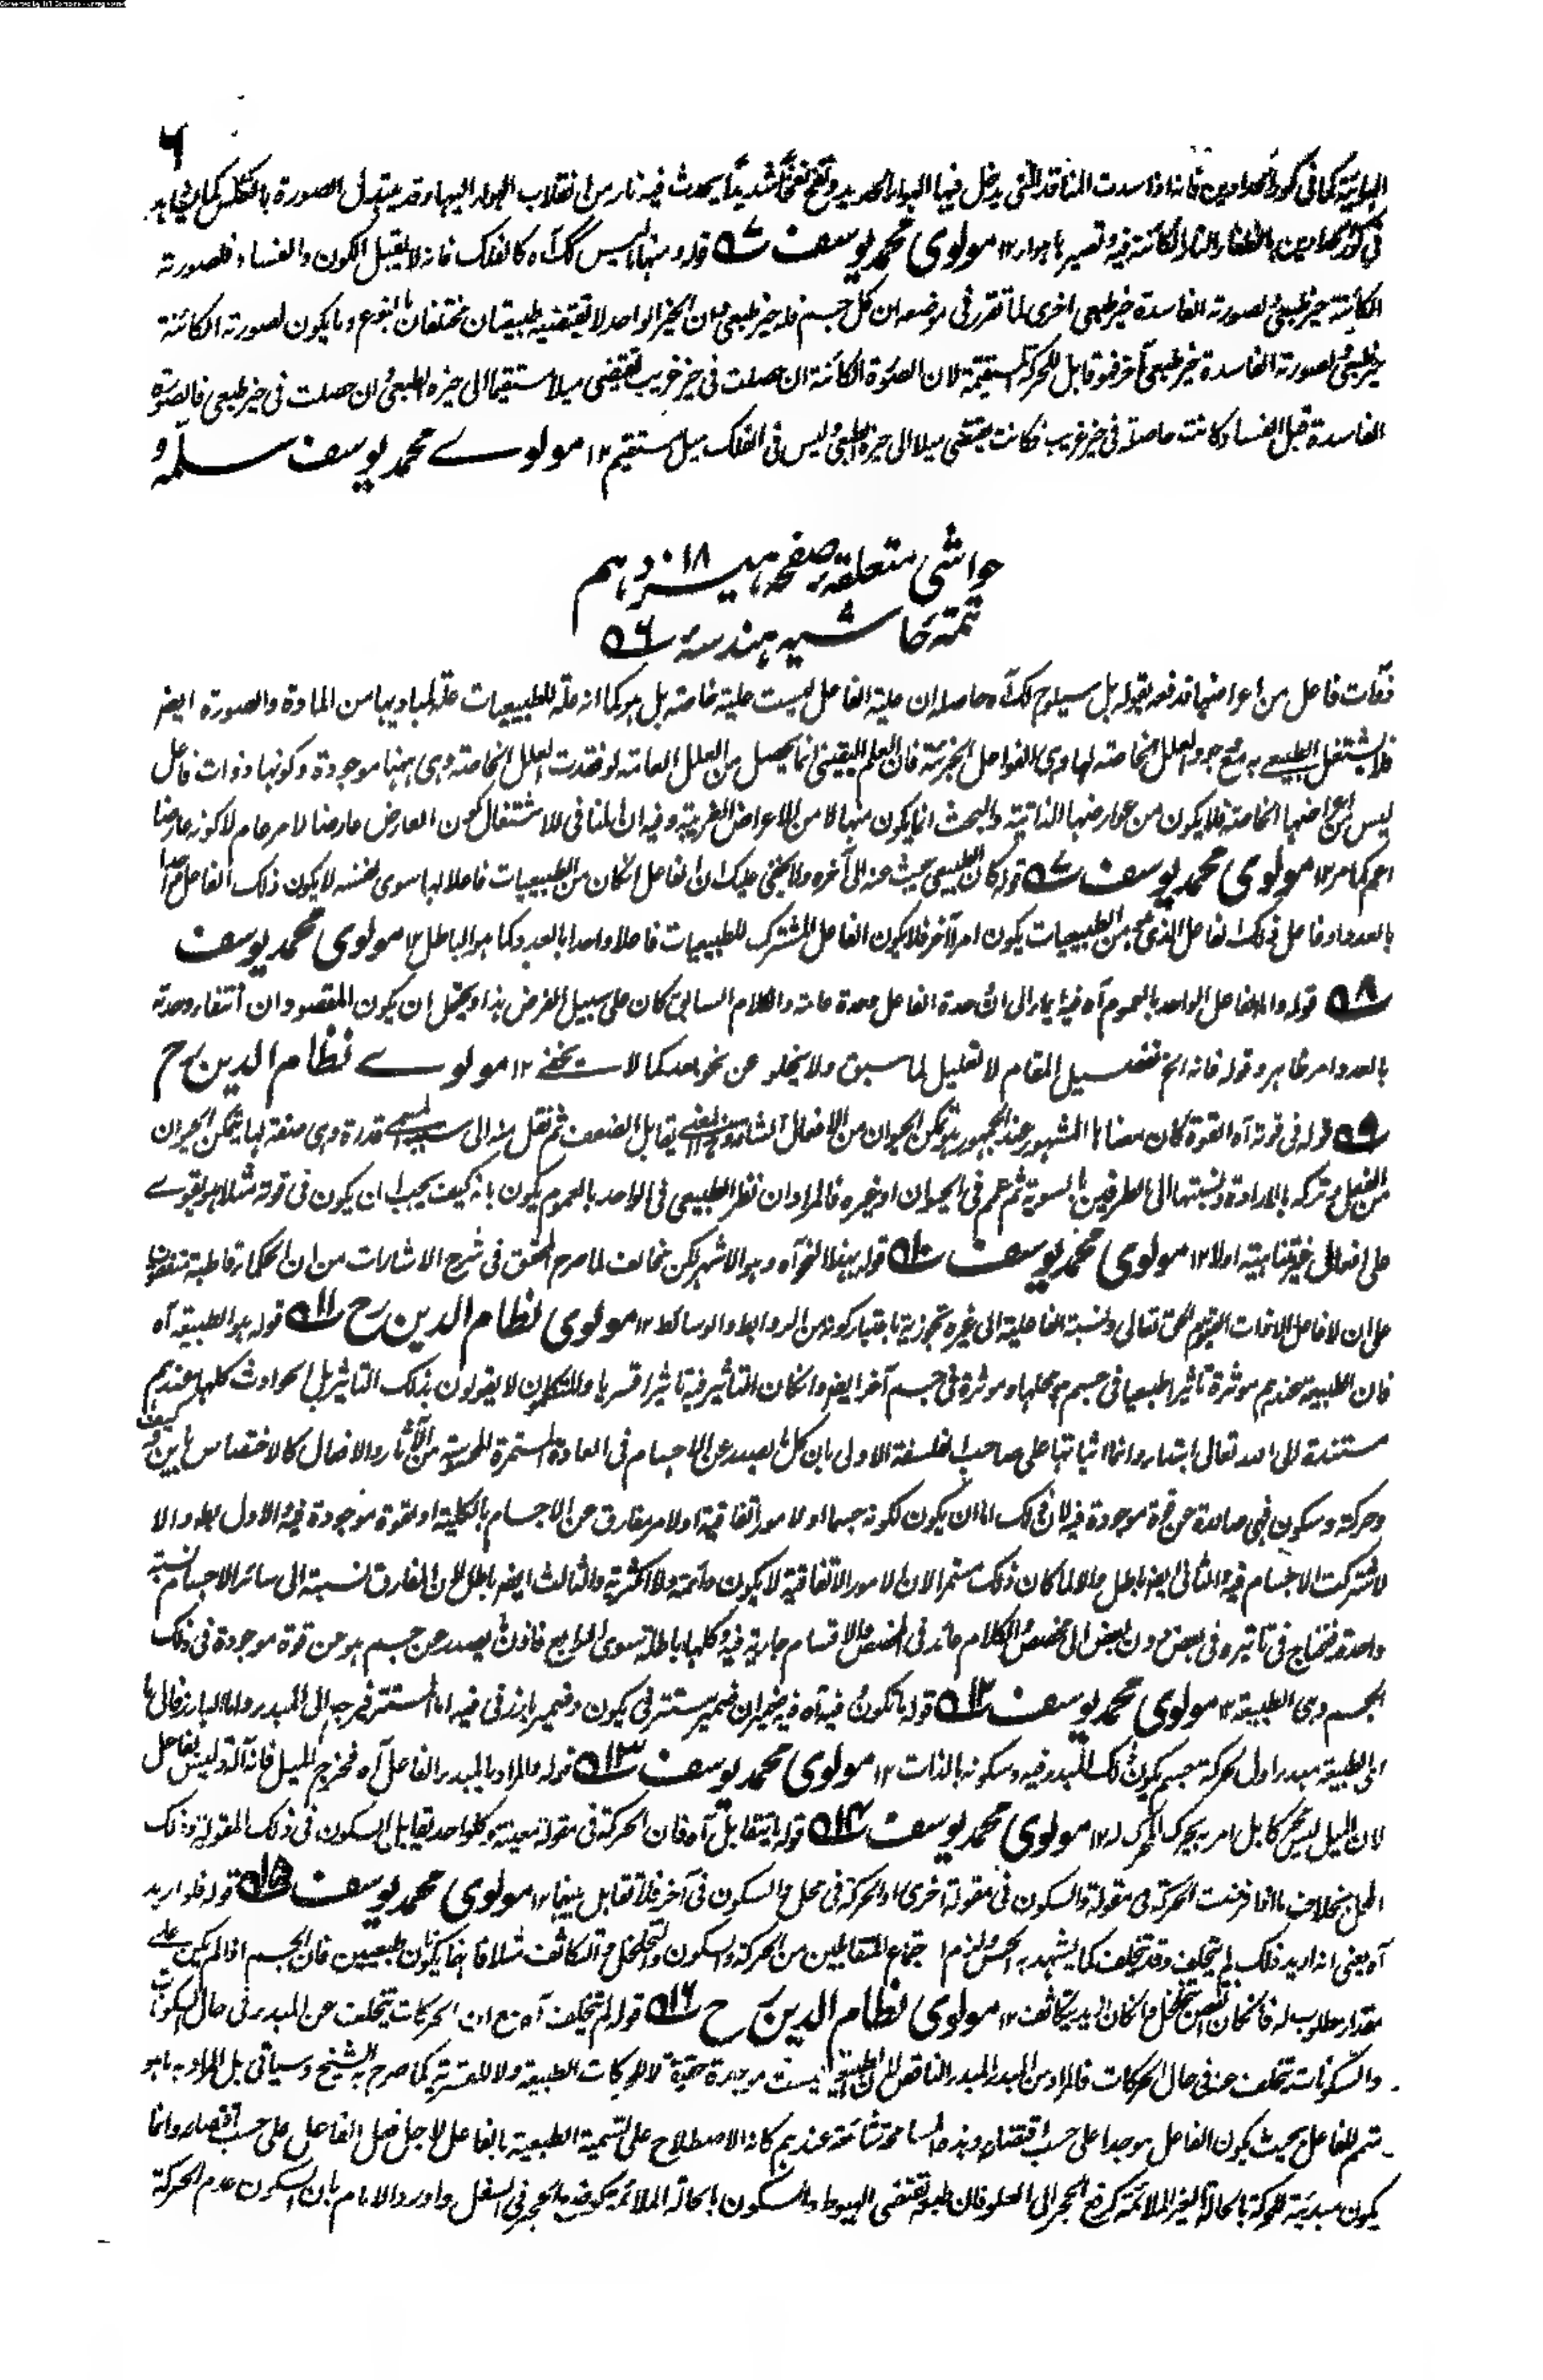 ۶
الهوائية كما في كور الحدادين فانه اذا سدت المنافذ التي يدخل فيها الهواء الجديد ونفخ نفخا شديدا يحدث فيه نار من انقلاب الهواء اليها وقد يتبدل الصورة بالعكس كما يشاهد
في كور الحدادين بانطفاء النار الكائنة فيه وتصير باهواء ١٢ مولوى محمد يوسف ٥٧ قوله ومنها ليس كك آه كالفلك فانه لا يقبل الكون والفساد فلصورته
الكائنة حيز طبعي ولصورته الفاسدة حيز طبعي اخرى لما تقرر في موضعه ان كل جسم فله حيز طبعي وان الحيز الواحد لا يقتضيه طبيعتان مختلفتان بالنوع وما يكون لصورته الكائنة
حيز طبعي ولصورته الفاسدة حيز طبعي آخر فهو قابل للحركة المستقيمة لان الصورة الكائنة ان حصلت في حيز غريب تقتضي ميلا مستقيما الى حيزه الطبعي وان حصلت في حيز طبعي فالصورة
الفاسدة قبل الفساد كانت حاصلة في حيز غريب فكانت يقتضي ميلا الى حيزه الطبعي وليس في الفلك ميل مستقيم ١٢ مولوے محمد یوسف سلمہ
حواشی متعلقہ صفحہ ہیزدہم ١٨
تتمہ حاشیہ ہندسہ ٥٦
ذوات فاعل من اعراضها قد فعه بقوله بل سيلوح لك آه وحاصله ان علية الفاعل ليست علية خاصة بل هو كما انه علة للطبيعيات علة لمباديها من المادة والصورة ايضا
فلا يشتغل الطبيعي به مع وجود العلل الخاصة لها وهي الفواعل الجزئية فان العلم اليقيني انما يحصل من العلل العامة لو فقدت العلل الخاصة وهي ههنا موجودة وكونها ذوات فاعل
ليس من اعراضها الخاصة فلا يكون من عوارضها الذاتية والبحث انما يكون منها لا من الاعراض الغريبة وفيه ان المنافي للاشتغال كون العارض عارضا لامر عام لا كونه عارضا
اعم كما مر ١٢ مولوى محمد يوسف ٥٧ قوله كان الطبيعي يبحث عنه الى آخره ولا يخفى عليك ان الفاعل ان كان من الطبيعيات فاعلا لها سوى نفسه لا يكون ذلك الفاعل واحدا
بالعدد اذ فاعل ذلك الفاعل الذي هو من الطبيعيات يكون امرا آخر فلا يكون الفاعل المشترك للطبيعيات فاعلا واحدا بالعدد كما هو الباطل ١٢ مولوى محمد يوسف
٥٨ قوله واما الفاعل الواحد بالعموم آه فيه ايماء الى ان وحدة الفاعل وحدة عامة والكلام السابق كان على سبيل الفرض هذا ويحتمل ان يكون المقصود ان انتفاء وحدته
بالعدد امر ظاهر وقوله فانه الخ تفصيل المقام لا تعليل لما سبق ولا يخلو عن نحو بعد كما لا يخفے ١٢ مولوے نظام الدين رح
٥٩ قوله في قوته آه القوة كان معناها المشهور عند الجمهور هو تمكن الحيوان من الافعال الشاقة يقابل الضعف ثم نقل منه الى قدرة وهي صفة بها يتمكن الحيوان
من الفعل وتركه بالارادة ونسبتها الى الطرفين بالسوية ثم عم في الحيوان او غيره فالمراد ان نظر الطبيعي في الواحد بالعموم يكون بانه كيف يجب ان يكون في قوته مثلا هو يقوے
على افعال غير متناهية اولا ١٢ مولوى محمد يوسف ٥١٠ قوله بهذا النحو آه وهو الاشهر لكن مخالف لما صرح المحقق في شرح الاشارات من ان الحكماء قاطبة متفقون
على ان لا فاعل الا ذات القيوم الحق تعالى ونسبة الفاعلية الى غيره تجوزية باعتبار كونه من الروابط والوسائط ١٢ مولوى نظام الدين رح ٥١١ قوله هو الطبيعة آه
فان الطبيعة عندهم موثرة تأثيرا طبيعيا في جسم هو محلها وموثرة في جسم آخر ايضا وان كان التأثير فيه تأثيرا قسريا والمتكلمون لا يقولون بذلك التأثير بل الحوادث كلها عندهم
مستندة الى الله تعالى ابتداء وانما اثباتها على صاحب الفلسفة الاولى بان كل ما يصدر عن الاجسام في العادة المستمرة المحسوسة من الآثار والافعال كالاختصاص باين وكيف
وحركة وسكون فهي صادرة عن قوة موجودة فيه لان ذلك اما ان يكون لكونه جسما او لامور اتفاقية او لامر مفارق عن الاجسام بالكلية او لقوة موجودة فيه الاول بط والا
لاشتركت الاجسام فيه والثاني ايضا باطل والا لما كان ذلك مستمرا لان الامور الاتفاقية لا يكون دائمة ولا اكثرية والثالث ايضا باطل لان المفارق نسبته الى سائر الاجسام نسبة
واحدة فتحتاج في تاثيره في بعض دون بعض الى مخصص والكلام عائد في المخصص والاقسام جارية فيه وكلها باطلة سوى الرابع فاذن ما يصدر عن جسم هو عن قوة موجودة في ذلك
الجسم وهي الطبيعة ١٢ مولوى محمد يوسف ٥١٢ قوله ما تكون فيه آه فيه ضميران ضمير مستتر في يكون وضمير بارز في فيه اما المستتر فيرجع الى المبدء واما البارز فالى ما
اي الطبيعة مبدء اول لحركة جسم يكون ذلك المبدء فيه وسكونه بالذات ١٢ مولوى محمد يوسف ٥١٣ قوله والمراد بالمبدء الفاعل آه فخرج الميل فانه آلة وليس بفاعل
لان الميل ليس محركا بل امر به يحرك المحرك ١٢ مولوى محمد يوسف ٥١٤ قوله ما يتقابل آه فان الحركة في مقولة معينة وكل واحد يقابل السكون في ذلك المقولة وذلك
المحل بخلاف ما اذا فرضت الحركة في مقولة والسكون في مقولة اخرى او الحركة في محل والسكون في آخر فلا تقابل بينهما ١٢ مولوى محمد يوسف ٥١٥ قوله فلو اريد
آه يعني اذا اريد ذلك لم يتخلف وقد تخلف كما يشهد به الحس ولزم اجتماع المتقابلين من الحركة والسكون والتخلخل والتكاثف مثلا فانهما يكونان طبيعيين فان الجسم اذا لم يكن على
مقدار مطلوب له فان كان انقص يتخلخل وان كان ازيد يتكاثف ١٢ مولوى نظام الدين رح ٥١٦ قوله لم يتخلف آه مع ان الحركات تتخلف عن المبدء في حال السكونات
والسكونات تتخلف عنه في حال الحركات فالمراد من المبدء المبدء الناقص لان الطبيعة ليست موجدة حقيقة لا للحركات الطبيعية ولا للقسرية كما صرح به الشيخ وسياتي بل المراد به ما هو
متمم للفاعل بحيث يكون الفاعل موجدا على حسب اقتضائه وهذه المسامحة شائعة عندهم كانه الاصطلاح على تسمية الطبيعية بالفاعل لاجل فعل الفاعل على حسب اقتضاء وانما
يكون مبدئية للحركة بالحالة الغير الملائمة كرفع الحجر الى العلو فان طبعه تقتضي الهبوط والسكون بالحالة الملائمة كوضع الحجر في السفل واورد الامام بان السكون عدم الحركة